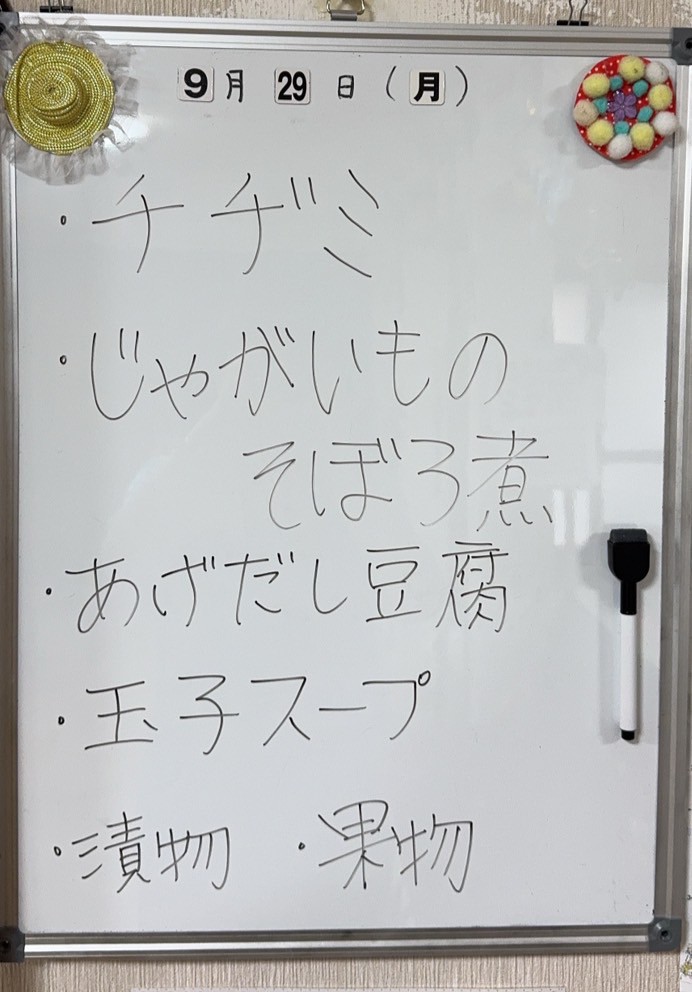 9月 29 日 (月)
・チヂミ
・じゃがいもの
そぼろ煮
・あげだし豆腐
・玉子スープ
・漬物 ・果物